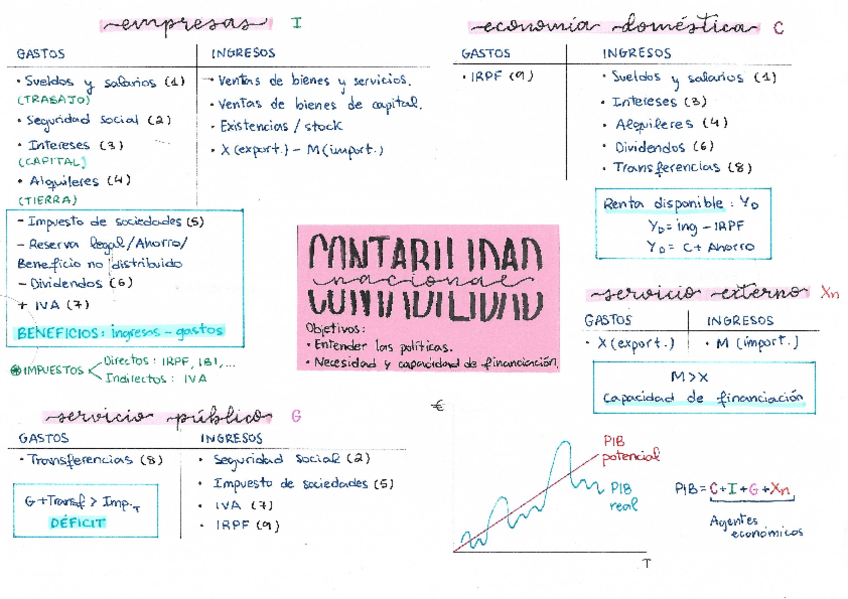 empresas I
GASTOS
INGRESOS
• Sueldos y salarios (1)
(TRABAJO)
• Seguridad social (2)
• Intereses (3)
(CAPITAL)
• Alquileres (4)
(TIERRA)
- Impuesto de sociedades (5)
- Reserva legal/Ahorro/
Beneficio no distribuido
- Dividendos (6)
+ IVA (7)
BENEFICIOS: ingresos - gastos
• Ventas de bienes y servicios.
• Ventas de bienes de capital.
• Existencias / stock
• X (export.) - M (import.)
IMPUESTOS
Directos: IRPF, IBI,...
Indirectos: IVA
economía doméstica C
GASTOS
INGRESOS
• IRPF (9)
• Sueldos y salarios (1)
• Intereses (3)
• Alquileres (4)
• Dividendos (6)
• Transferencias (8)
Renta disponible: YD
YD = ing - IRPF
YD = C + Ahorro
CONTABILIDAD
nacional
Objetivos:
• Entender las políticas.
• Necesidad y capacidad de financiación.
servicio externo Xn
GASTOS
INGRESOS
• X (export.)
• M (import.)
M > X
Capacidad de financiación
servicio público G
GASTOS
INGRESOS
• Transferencias (8)
G + Transf > Imp.T
DÉFICIT
• Seguridad Social (2)
• Impuesto de sociedades (5)
• IVA (7)
• IRPF (9)
€
PIB
potencial
PIB
real
T
PIB = C + I + G + Xn
Agentes
económicos